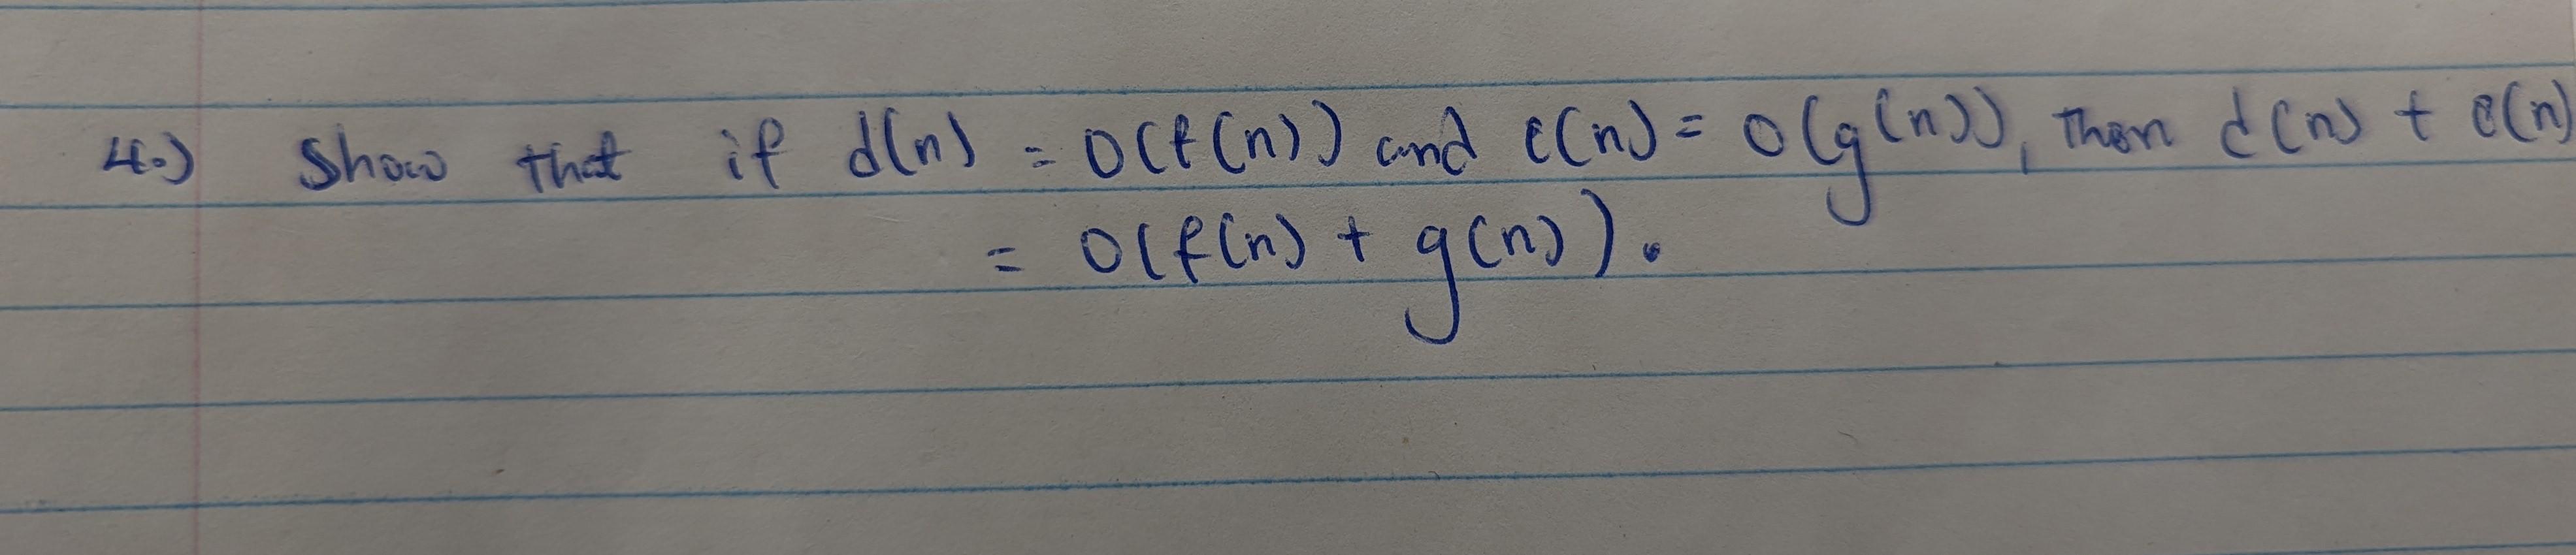 4.) Show that if d(n) = O(f(n)) and e(n) = O(g(n)), then d(n) + e(n)
= O(f(n) + g(n)).